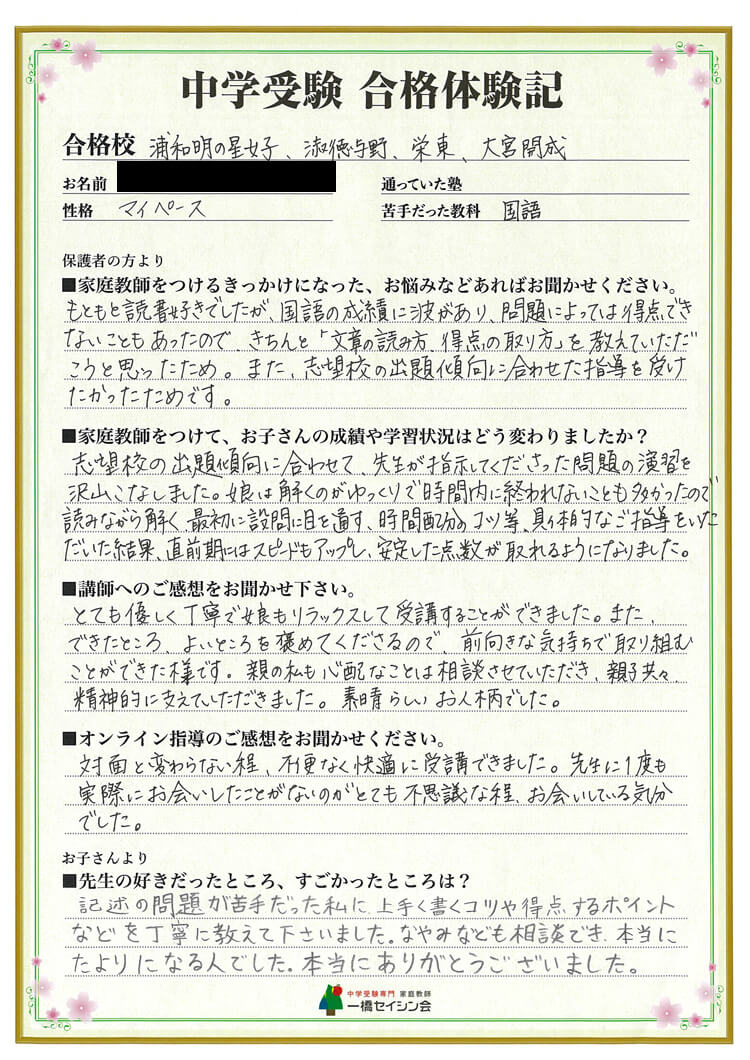 中学受験 合格体験記
合格校 浦和明の星女子、淑徳与野、栄東、大宮開成
お名前
通っていた塾
性格 マイペース
苦手だった教科 国語
保護者の方より
■家庭教師をつけるきっかけになった、お悩みなどあればお聞かせください。
もともと読書好きでしたが、国語の成績に波があり、問題によっては得点でき
ないこともあったので、きちんと「文章の読み方、得点の取り方」を教えていただ
こうと思ったため。また、志望校の出題傾向に合わせた指導を受け
たかったためです。
■家庭教師をつけて、お子さんの成績や学習状況はどう変わりましたか？
志望校の出題傾向に合わせて、先生が指示してくださった問題の演習を
沢山こなしました。娘は解くのがゆっくりで時間内に終われないことも多かったので
読みながら解く、最初に設問に目を通す、時間配分のコツ等、具体的なご指導をいた
だいた結果、直前期にはスピードもアップし、安定した点数が取れるようになりました。
■講師へのご感想をお聞かせ下さい。
とても優しく丁寧で娘もリラックスして受講することができました。また、
できたところ、よいところを褒めてくださるので、前向きな気持ちで取り組む
ことができた様です。親の私も心配なことは相談させていただき、親子共々、
精神的に支えていただきました。素晴らしいお人柄でした。
■オンライン指導のご感想をお聞かせください。
対面と変わらない程、不便なく快適に受講できました。先生に1度も
実際にお会いしたことがないのがとても不思議な程、お会いしている気分
でした。
お子さんより
■先生の好きだったところ、すごかったところは？
記述の問題が苦手だった私に、上手く書くコツや得点するポイント
などを丁寧に教えて下さいました。なやみなども相談でき、本当に
たよりになる人でした。本当にありがとうございました。
中学受験専門 家庭教師
一橋セイシン会